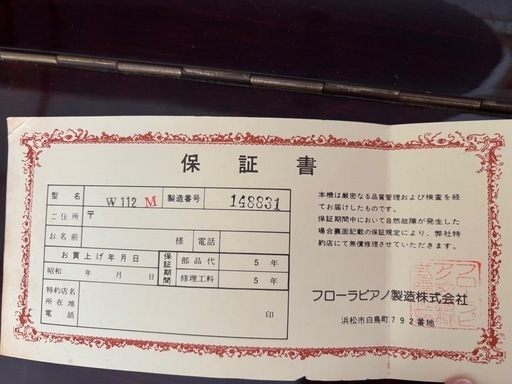 保証書
型名 W112 M 製造番号 148831
ご住所 〒
お名前 様 電話
お買上げ年月日 保証期間 部品代 5年
昭和 年 月 日 修理工料 5年
特約店名
所在地
電話 印
本機は厳密なる品質管理および検査を経
てお届けしたものです。
保証期間中において自然故障が発生した
場合裏面記載の保証規定により、弊社特
約店にて無償修理させていただきます。
フローラピアノ製造株式会社
浜松市白鳥町792番地